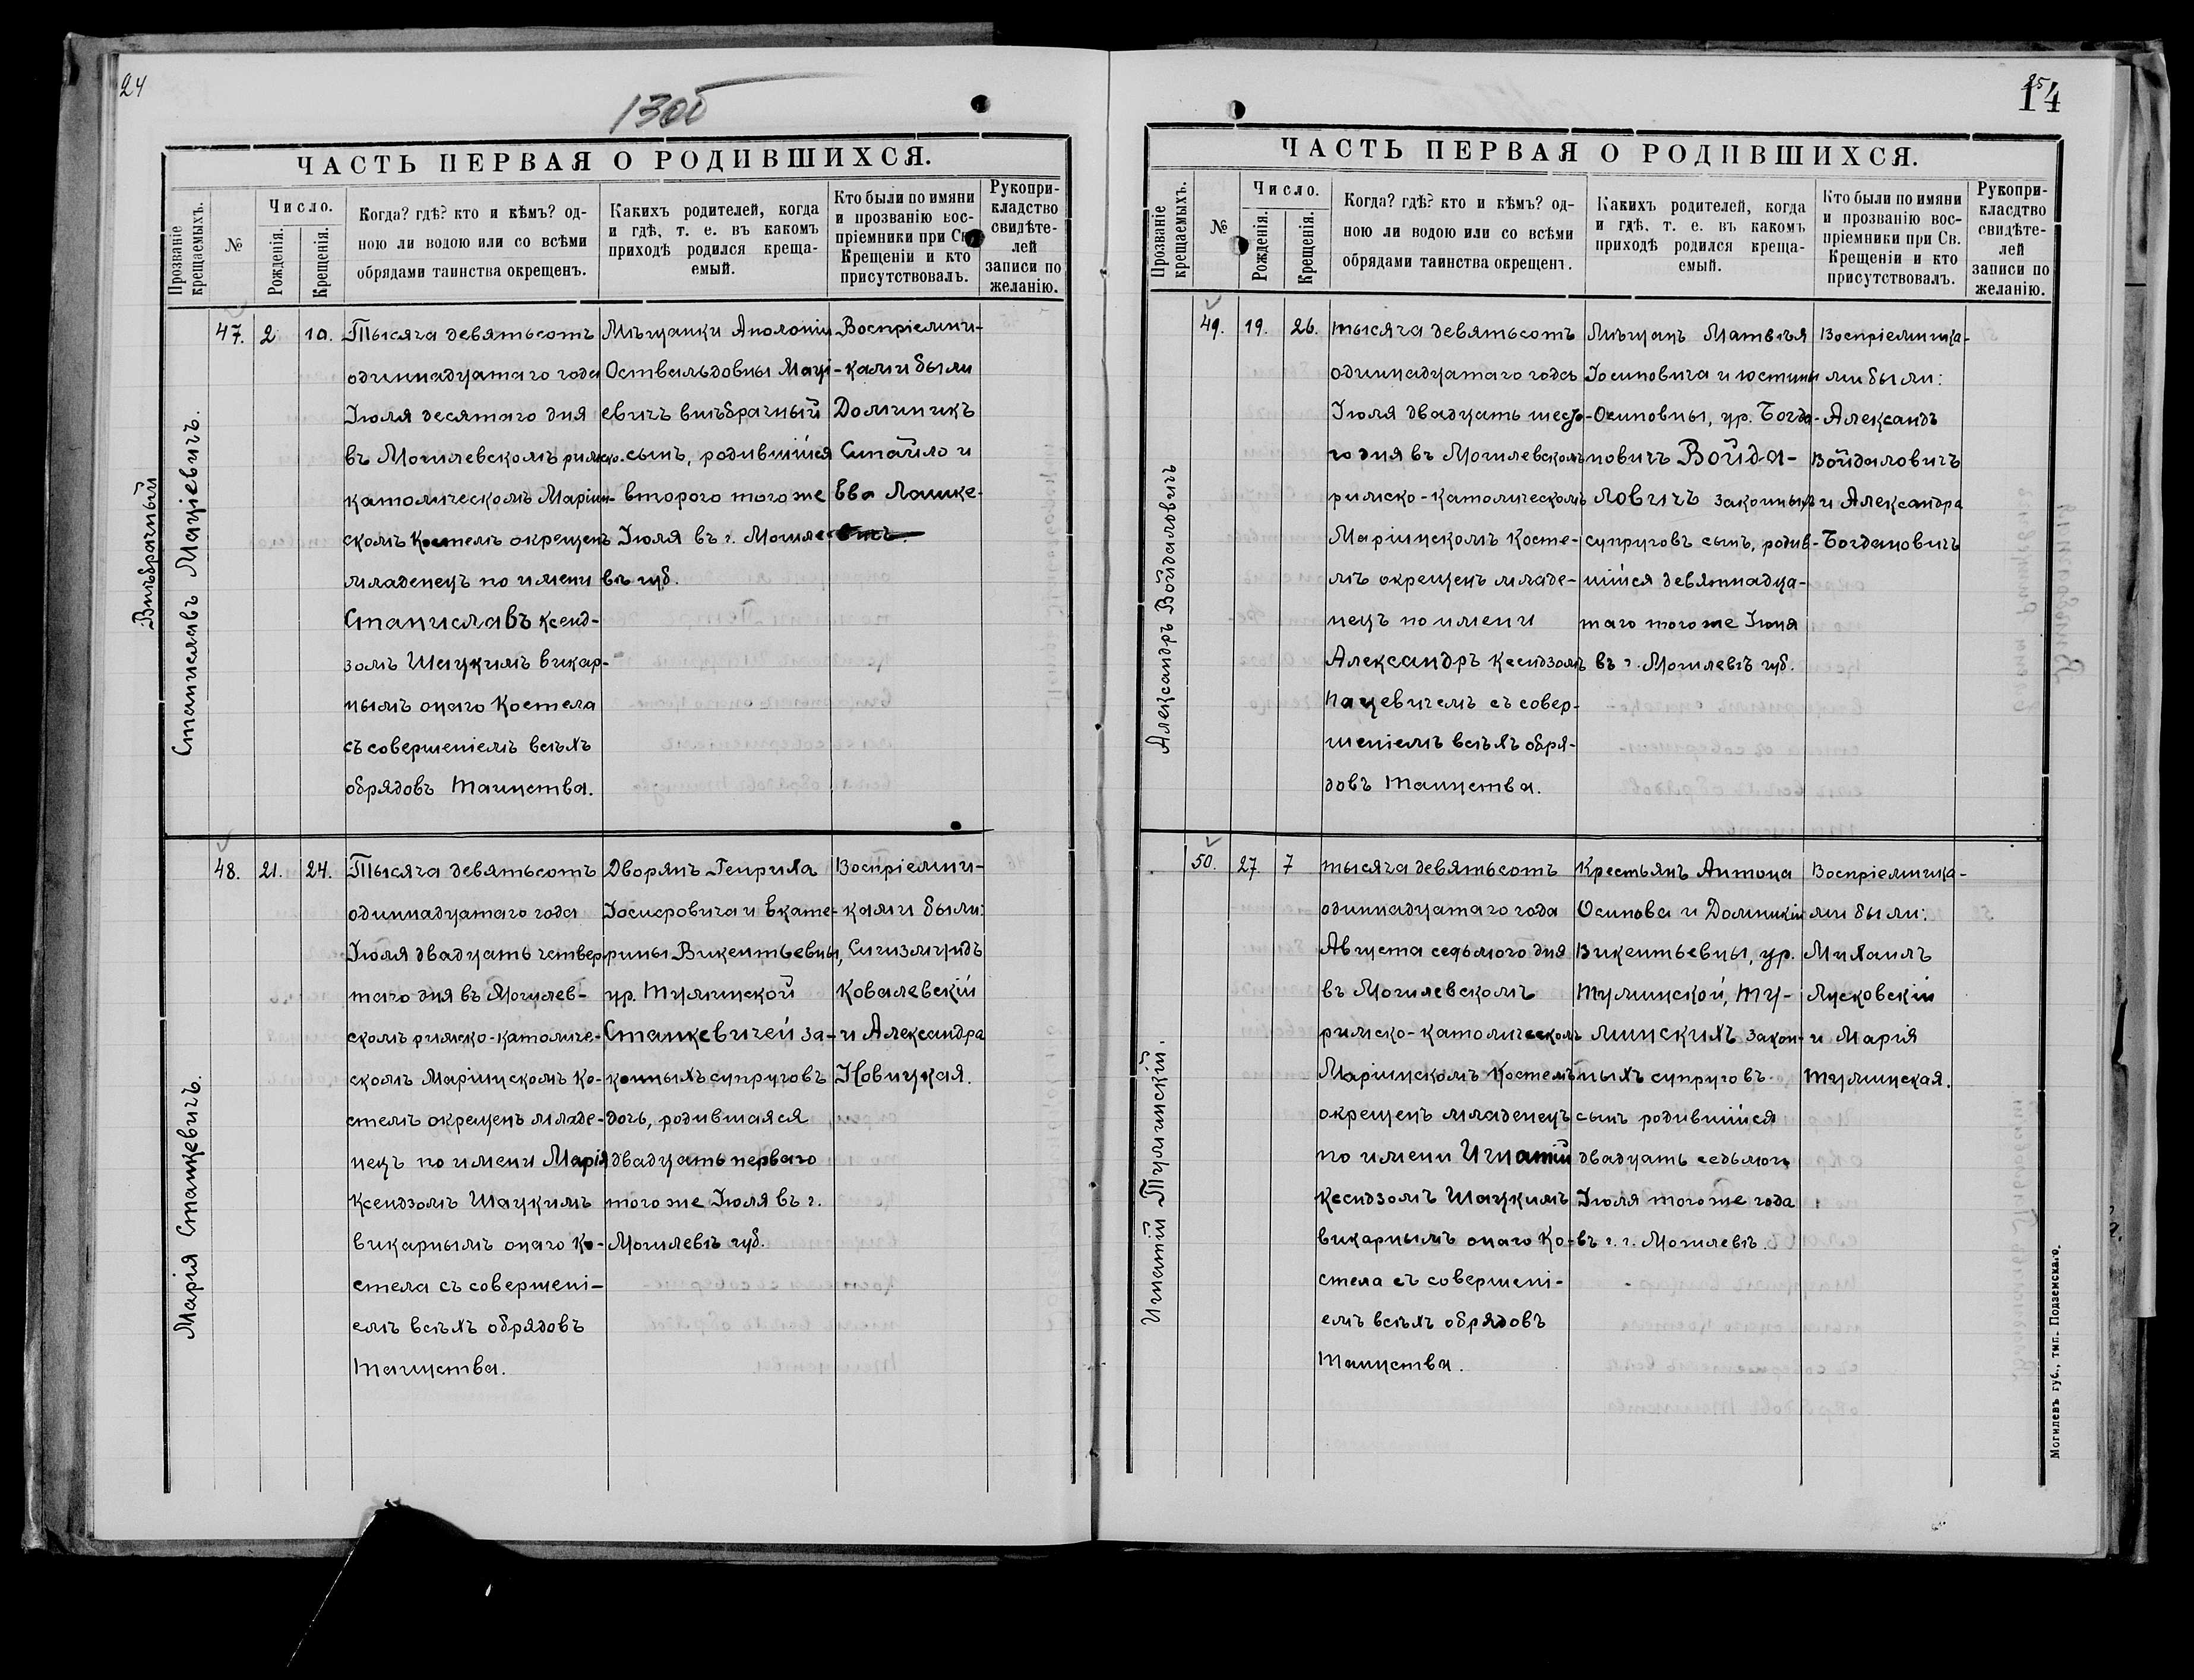 24
13об
ЧАСТЬ ПЕРВАЯ О РОДИВШИХСЯ.
Прозваніе крещаемыхъ.
№
Число.
Рожденія.
Крещенія.
Когда? гдѣ? кто и кѣмъ? од-
ною ли водою или со всѣми
обрядами таинства окрещенъ.
Какихъ родителей, когда
и гдѣ, т. е. въ какомъ
приходѣ родился креща-
емый.
Кто были по имяни
и прозванію вос-
пріемники при Св.
Крещеніи и кто
присутствовалъ.
Рукопри-
кладство
свидѣте-
лей
записи по
желанію.
Внѣбрачный
Станиславъ Мацѣевичъ.
47.
2
10.
Тысяча девятьсотъ
одиннадцатаго года
Іюля десятаго дня
въ Могилевскомъ римско-
католическомъ Маріин-
скомъ Костелѣ окрещенъ
младенецъ по имени
Станиславъ Ксенд-
зомъ Шацкимъ викар-
нымъ онаго Костела
съ совершеніемъ всѣхъ
обрядовъ Таинства.
Мѣщанки Аполоніи
Оствальдовны Маці-
евичъ внѣбрачный
сынъ, родившійся
второго того же
Іюля въ г. Могиле-
вѣ губ.
Воспріемни-
ками были
Доминикъ
Стайло и
Ева Лашке-
вичъ.
Марія Станкевичъ.
48.
21.
24.
Тысяча девятьсотъ
одиннадцатаго года
Іюля двадцать четвер-
таго дня въ Могилев-
скомъ римско-католиче-
скомъ Маріинскомъ Ко-
стелѣ окрещенъ младе-
нецъ по имени Марія
Ксендзомъ Шацкимъ
викарнымъ онаго Ко-
стела съ совершені-
емъ всѣхъ обрядовъ
Таинства.
Дворянъ Генриха
Іосифовича и Екате-
рины Викентьевны,
ур. Тулинской
Станкевичей за-
конныхъ супруговъ
дочь, родившаяся
двадцать перваго
того же Іюля въ г.
Могилевѣ губ.
Воспріемни-
ками были:
Сигизмундъ
Ковалевскій
и Александра
Новицкая.
25
14
ЧАСТЬ ПЕРВАЯ О РОДИВШИХСЯ.
Прозваніе крещаемыхъ.
№
Число.
Рожденія.
Крещенія.
Когда? гдѣ? кто и кѣмъ? од-
ною ли водою или со всѣми
обрядами таинства окрещенъ.
Какихъ родителей, когда
и гдѣ, т. е. въ какомъ
приходѣ родился креща-
емый.
Кто были по имяни
и прозванію вос-
пріемники при Св.
Крещеніи и кто
присутствовалъ.
Рукопри-
класдтво
свидѣте-
лей
записи по
желанію.
Александръ Войдаловичъ
49.
19.
26.
тысяча девятьсотъ
одиннадцатаго года
Іюля двадцать шесто-
го дня въ Могилевскомъ
римско-католическомъ
Маріинскомъ Косте-
лѣ окрещенъ младе-
нецъ по имени
Александръ Ксендзомъ
Пацевичемъ съ совер-
шеніемъ всѣхъ обря-
довъ Таинства.
Мѣщанъ Матвѣя
Іосиповича и Юстины
Осиповны, ур. Богда-
новичъ Войда-
ловичъ законныхъ
супруговъ сынъ, родив-
шійся девятнадца-
таго того же Іюля
въ г. Могилевѣ губ.
Воспріемника-
ми были:
Александъ
Войдаловичъ
и Александра
Богдановичъ
Игнатій Тулинскій.
50.
27.
7
тысяча девятьсотъ
одиннадцатаго года
Августа седьмого дня
въ Могилевскомъ
римско-католическомъ
Маріинскомъ Костелѣ
окрещенъ младенецъ
по имени Игнатій
Ксендзомъ Шацкимъ
викарнымъ онаго Ко-
стела съ совершені-
емъ всѣхъ обрядовъ
Таинства.
Крестьянъ Антона
Осипова и Доминикіи
Викентьевны, ур.
Тулинской, Ту-
линскихъ закон-
ныхъ супруговъ
сынъ родившійся
двадцать седьмого
Іюля того же года
въ г. г. Могилевѣ.
Воспріемника-
ми были:
Михаилъ
Лусковскій
и Марія
Тулинская.
Могилевъ губ., тип. Подземскаго.